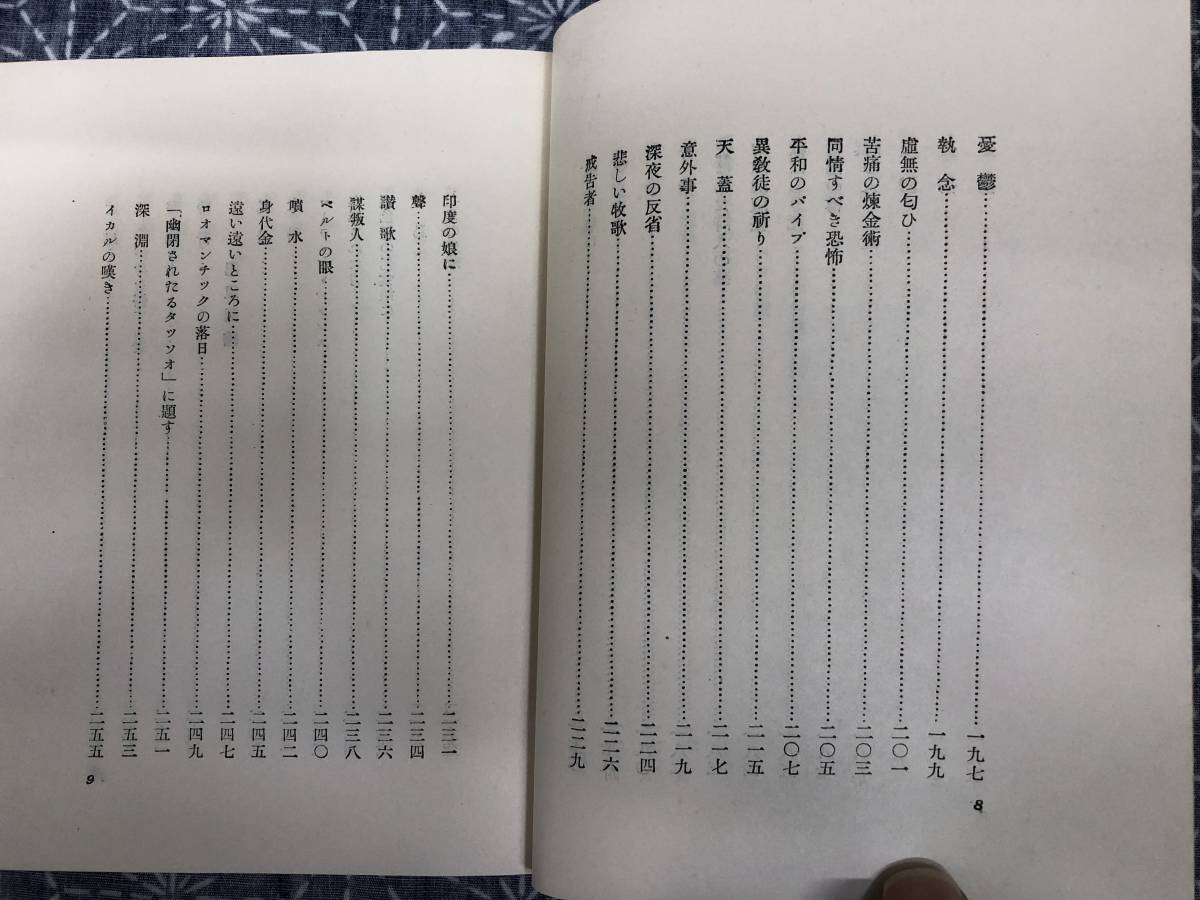 憂鬱……一九七
執念……一九九
虚無の匂ひ……二〇一
苦痛の煉金術……二〇三
同情すべき恐怖……二〇五
平和のパイプ……二〇七
異教徒の祈り……二一五
天蓋……二一七
意外事……二一九
深夜の反省……二二四
悲しい牧歌……二二六
戒告者……二二九
8
印度の娘に……二三一
聲……二三四
讃歌……二三六
謀叛人……二三八
ベルトの眼……二四〇
噴水……二四二
身代金……二四五
遠い遠いところに……二四七
ロオマンチックの落日……二四九
「幽閉されたるタッソオ」に題す……二五一
深淵……二五三
イカルの嘆き……二五五
9